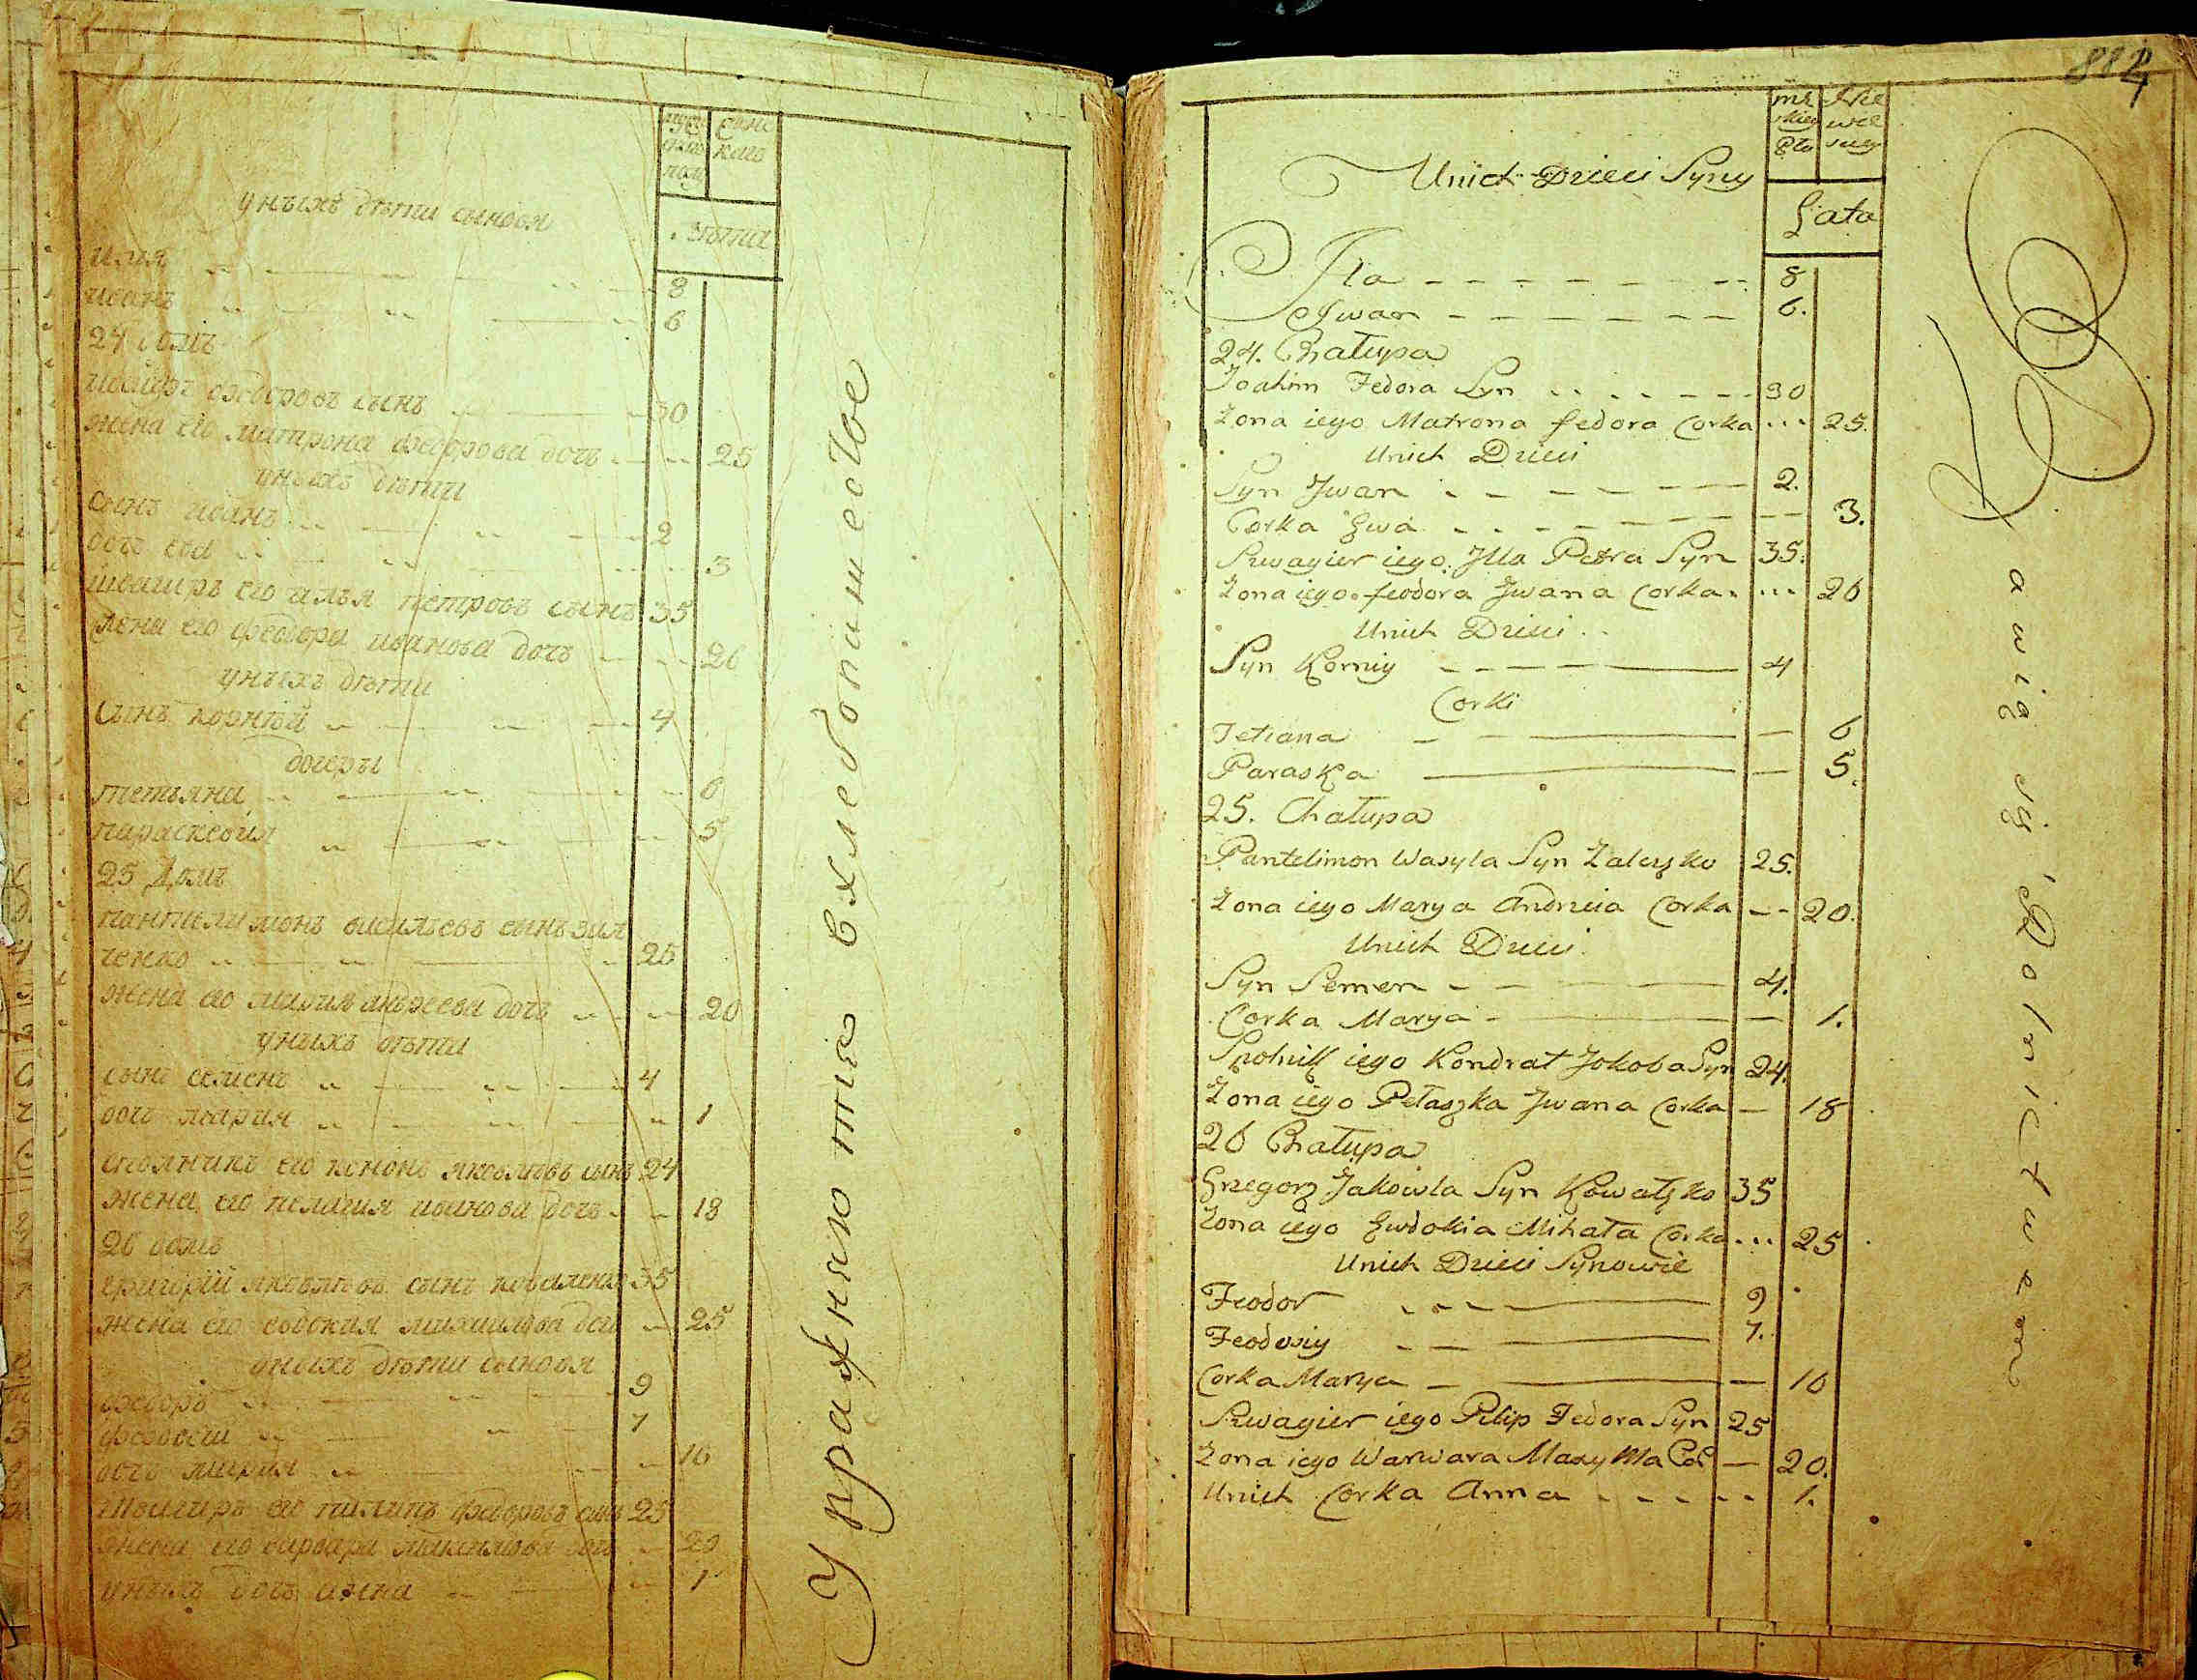 мужеска полу
женска
Лѣта
у ныхъ дѣти сыновя
илия 8
иванъ 6
24 домъ
федоровъ сынъ 30
жена его матрона федорова дочъ 25
у ныхъ дѣти
сынъ иванъ 2
дочъ ева 3
швагиръ его илья петровъ сынъ 35
жена его феодора иванова дочъ 26
у ныхъ дѣти
сынъ корнѣй 4
дочеры
тетьяна 6
параскевия 5
25 домъ
пантелимонъ васильевъ сынъ зал
ченко 25
жена его мария андреева дочъ 20
у ныхъ дѣти
сынъ семенъ 4
дочъ мария 1
сполникъ его яковлевъ сынъ 24
жена его пелагия иванова дочъ 18
26 домъ
григорій яковлевъ сынъ коваленко 35
жена его евдокия михайлова дочъ 25
у ныхъ дѣти сыновя
федоръ 9
феодосій 7
дочъ мария 16
швагиръ его пилипъ федоровъ сынъ 25
жена его варвара дочъ 20
у ныхъ дочъ анна 1
Упражняютця в хлебопашестве
884
męskiey Płci
Niewieściey
Lata
U nich Dzieci Syny
Jla 8
Jwan 6.
24. Chałupa
Joahim Fedora Syn 30
Żona iego Matrona fedora Corka 25.
U nich Dzieci
Syn Jwan 2.
Corka Ewa 3.
Szwagier iego Jlla Petra Syn 35.
Żona iego feodora Jwana Corka 26
U nich Dzieci
Syn Korniy 4
Corki
Tetiana 6
Paraska 5.
25. Chałupa
Pantelimon Wasyla Syn Zalczko 25.
Żona iego Marya Andrzeia Corka 20.
U nich Dzieci
Syn Semen 4.
Corka Marya 1.
Spolnik iego Kondrat Jokoba Syn 24.
Żona iego Pełaszka Jwana Corka 18
26 Chałupa
Grzegorz Jakowla Syn Kowalzko 35
Żona iego Ewdokia Mihała Corka 25
U nich Dzieci Synowie
Feodor 9
Feodosiy 7.
Corka Marya 16
Szwagier iego Pilip Fedora Syn 25
Żona iego Warwara Maxyma Cor 20.
U nich Corka Anna 1.
Bawią się Rolnictwem